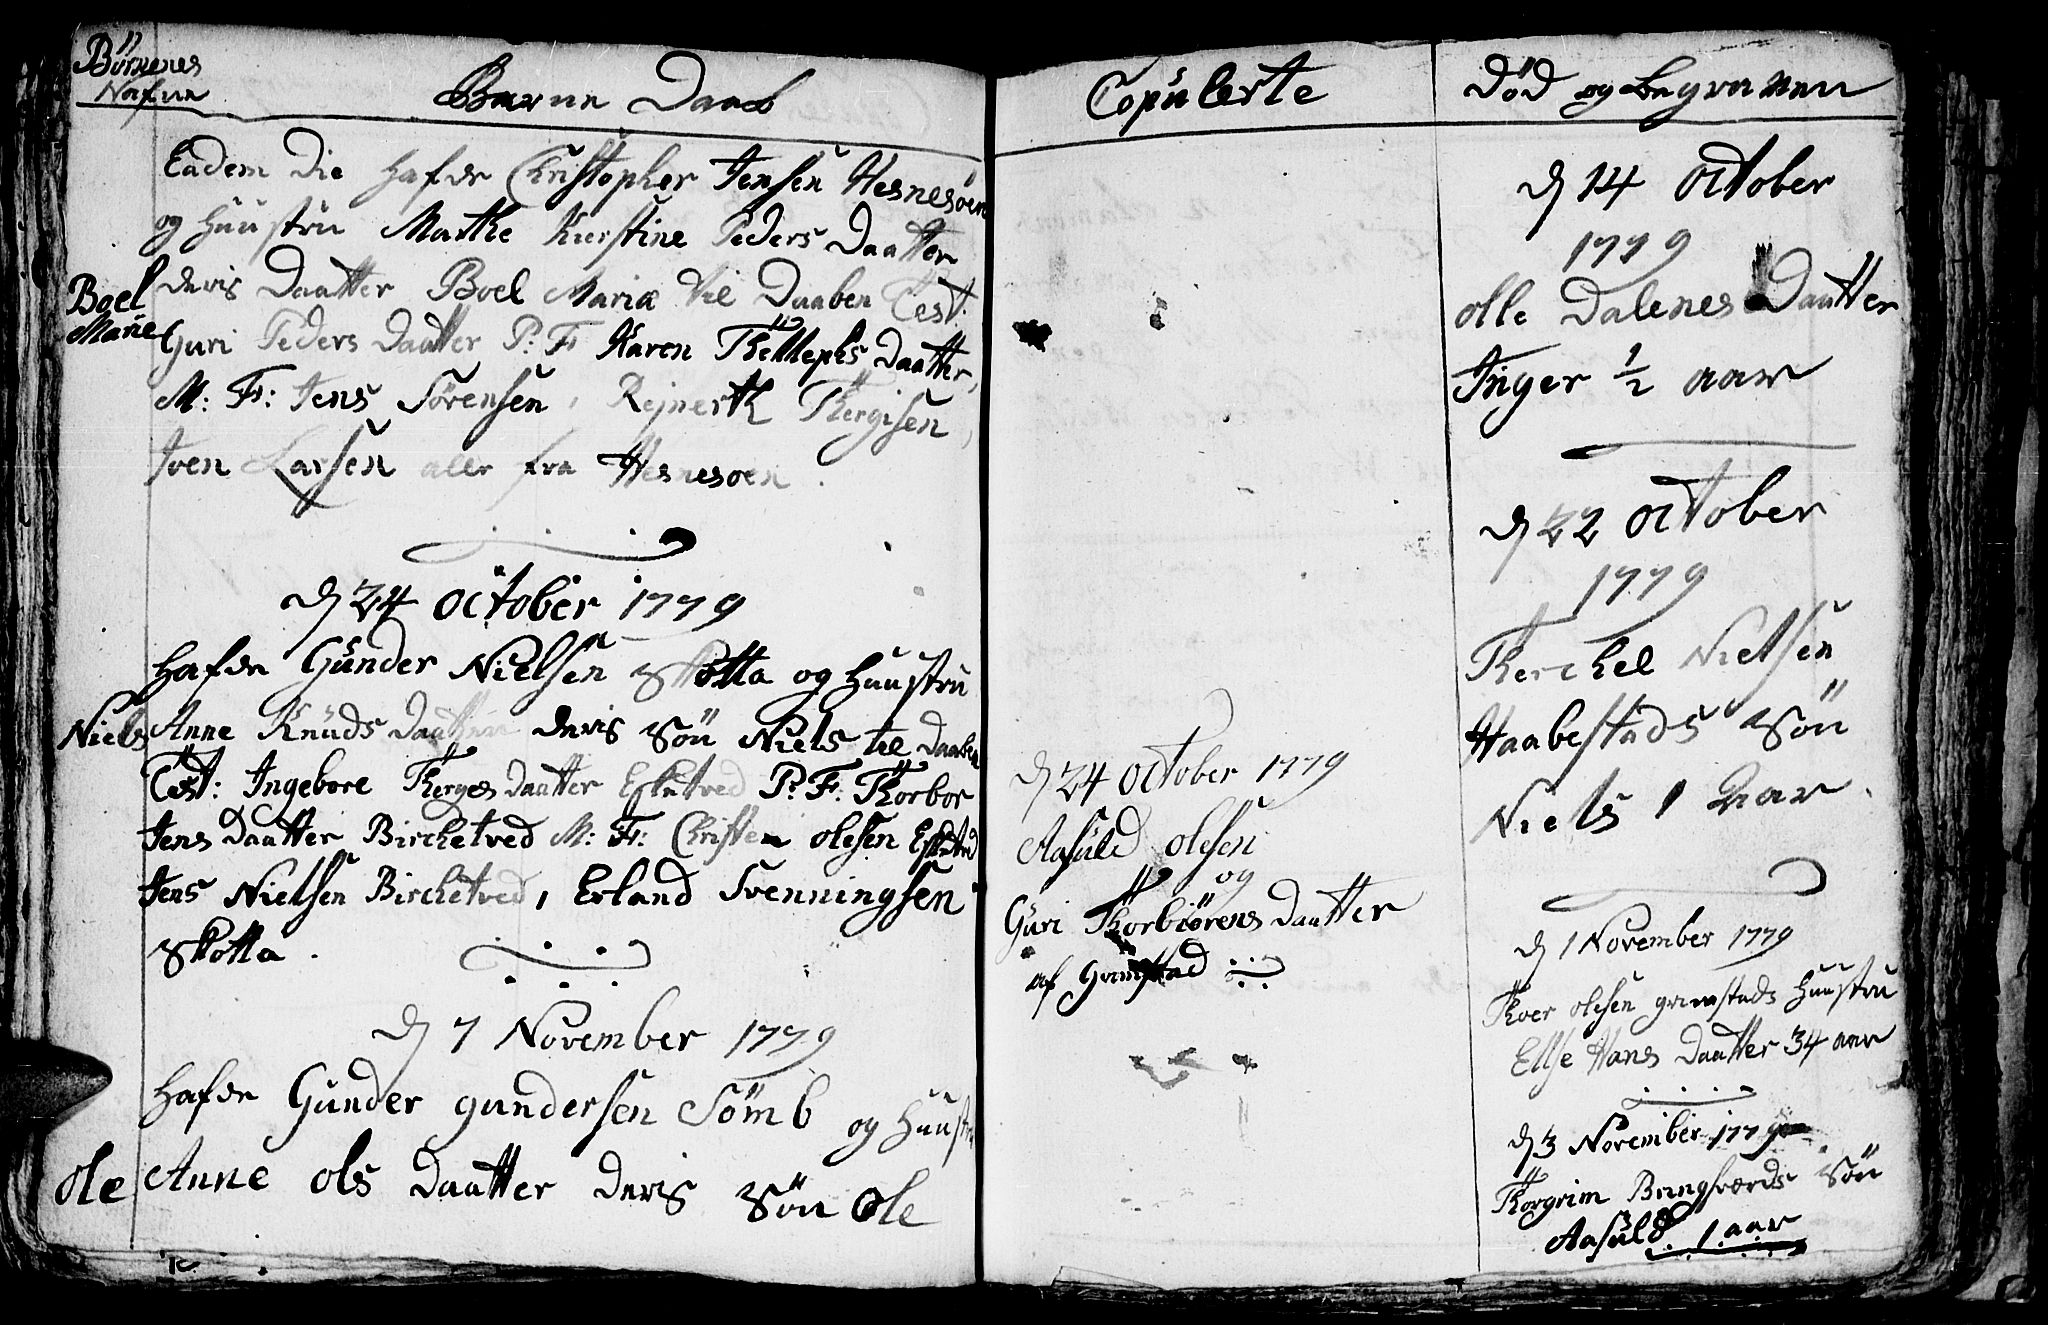 Börnenes
Nafne
Barne Daab
Eadem Die hafde Christopher Jensen Hesnesøen
og Huustru Marthe Kierstine Peders Daatter
Boel
Marie
deris Daatter Boel Maria til Daaben Test:
Guri Peders Daatter P: F: Karen Thellephs Daatter,
M: F: Jens Sörensen, Rejnerth Thergisen,
Iven Larsen aller fra Hesnesøen.
d 24 October 1779
Hafde Günder Nielsen Skotta og Huustru
Niels
Anne Knuds Daatter deris Sön Niels til Daaben
Test: Ingebore Therges Daatter Eskетved P: F: Thorbor
Jens Daatter Birchetved M: F: Christen Olesen
Jens Nielsen Birchetved, Erland Svenningsen
Skotta.
d 7 November 1779
Hafde Günder gundersen Sömb og Huustru
Ole
Anne Ols Daatter deris Sön Ole
Copulerte
d 24 October 1779
Aasuld Olesen
og
Guri Thorbiörens Daatter
af Grimstad
Död og Begraven
d 14 October
1779
Olle Dalenes Daatter
Inger 1/2 aar
d 22 October
1779
Therchel Nielsen
Haabestads Sön
Niels 1 Aar.
d 1 November 1779
Thoer Olesen grimstads Huustru
Ellse Hans Daatter 34 aar
d 3 November 1779
Thorgrim Bringsværds Sön
Aasuld 1 aar